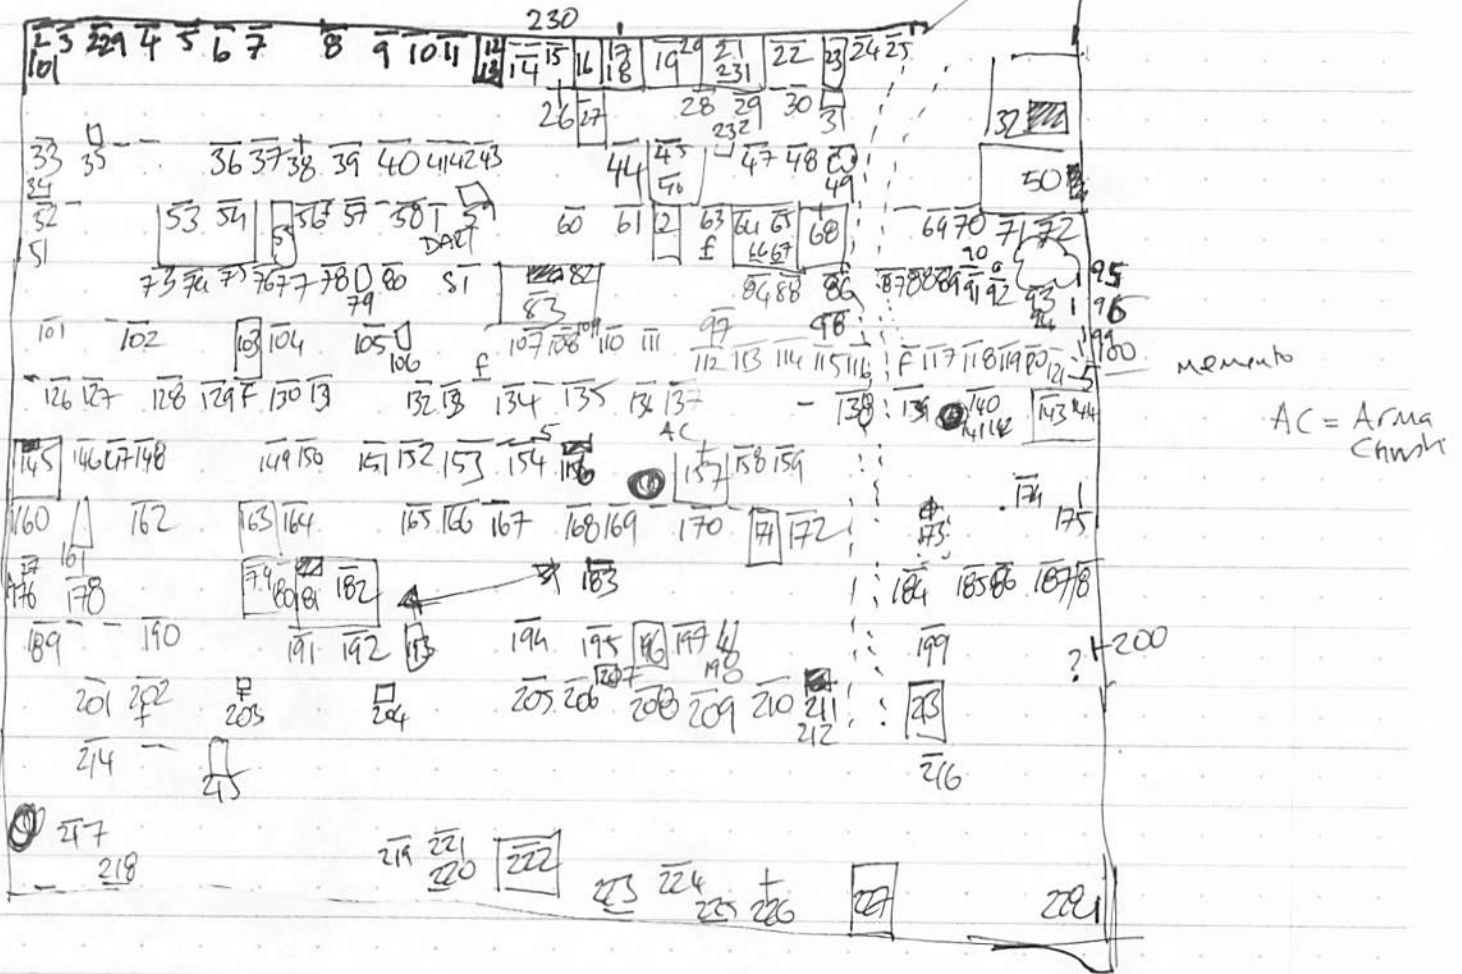 230
2 3 229 4 5 6 7 8 9 10 11 12 14 15 16 17 19 29 21 22 23 24 25
101 13 18 231
26 27 28 29 30 31 32
232
33 35 36 37 38 39 40 41 42 43 44 45 47 48 50
34 46 49
52 53 54 55 56 57 58 59 60 61 62 63 64 65 68 69 70 71 72
51 DART f 66 67
73 74 75 76 77 78 80 81 82 84 88 86 87 88 89 90 91 92 93 95
79 83 94 96
101 102 103 104 105 106 107 108 109 110 111 97 98 99
f 112 113 114 115 116 f 117 118 119 120 121 100 memento
126 127 128 129 f 130 131 132 133 134 135 136 137 138 139 140 143 144
141 142
AC AC = Arma
Christi
145 146 147 148 149 150 151 152 153 154 5 156 157 158 159
160 162 163 164 165 166 167 168 169 170 171 172 173 174 175
161
177
176 178 179 180 181 182 183 184 185 186 187 188
189 190 191 192 193 194 195 196 197 199 ? 200
198
201 202 203 204 205 206 207 208 209 210 211 213
f 212
214 215 216
217 219 221 222
218 220 223 224 225 226 227 228